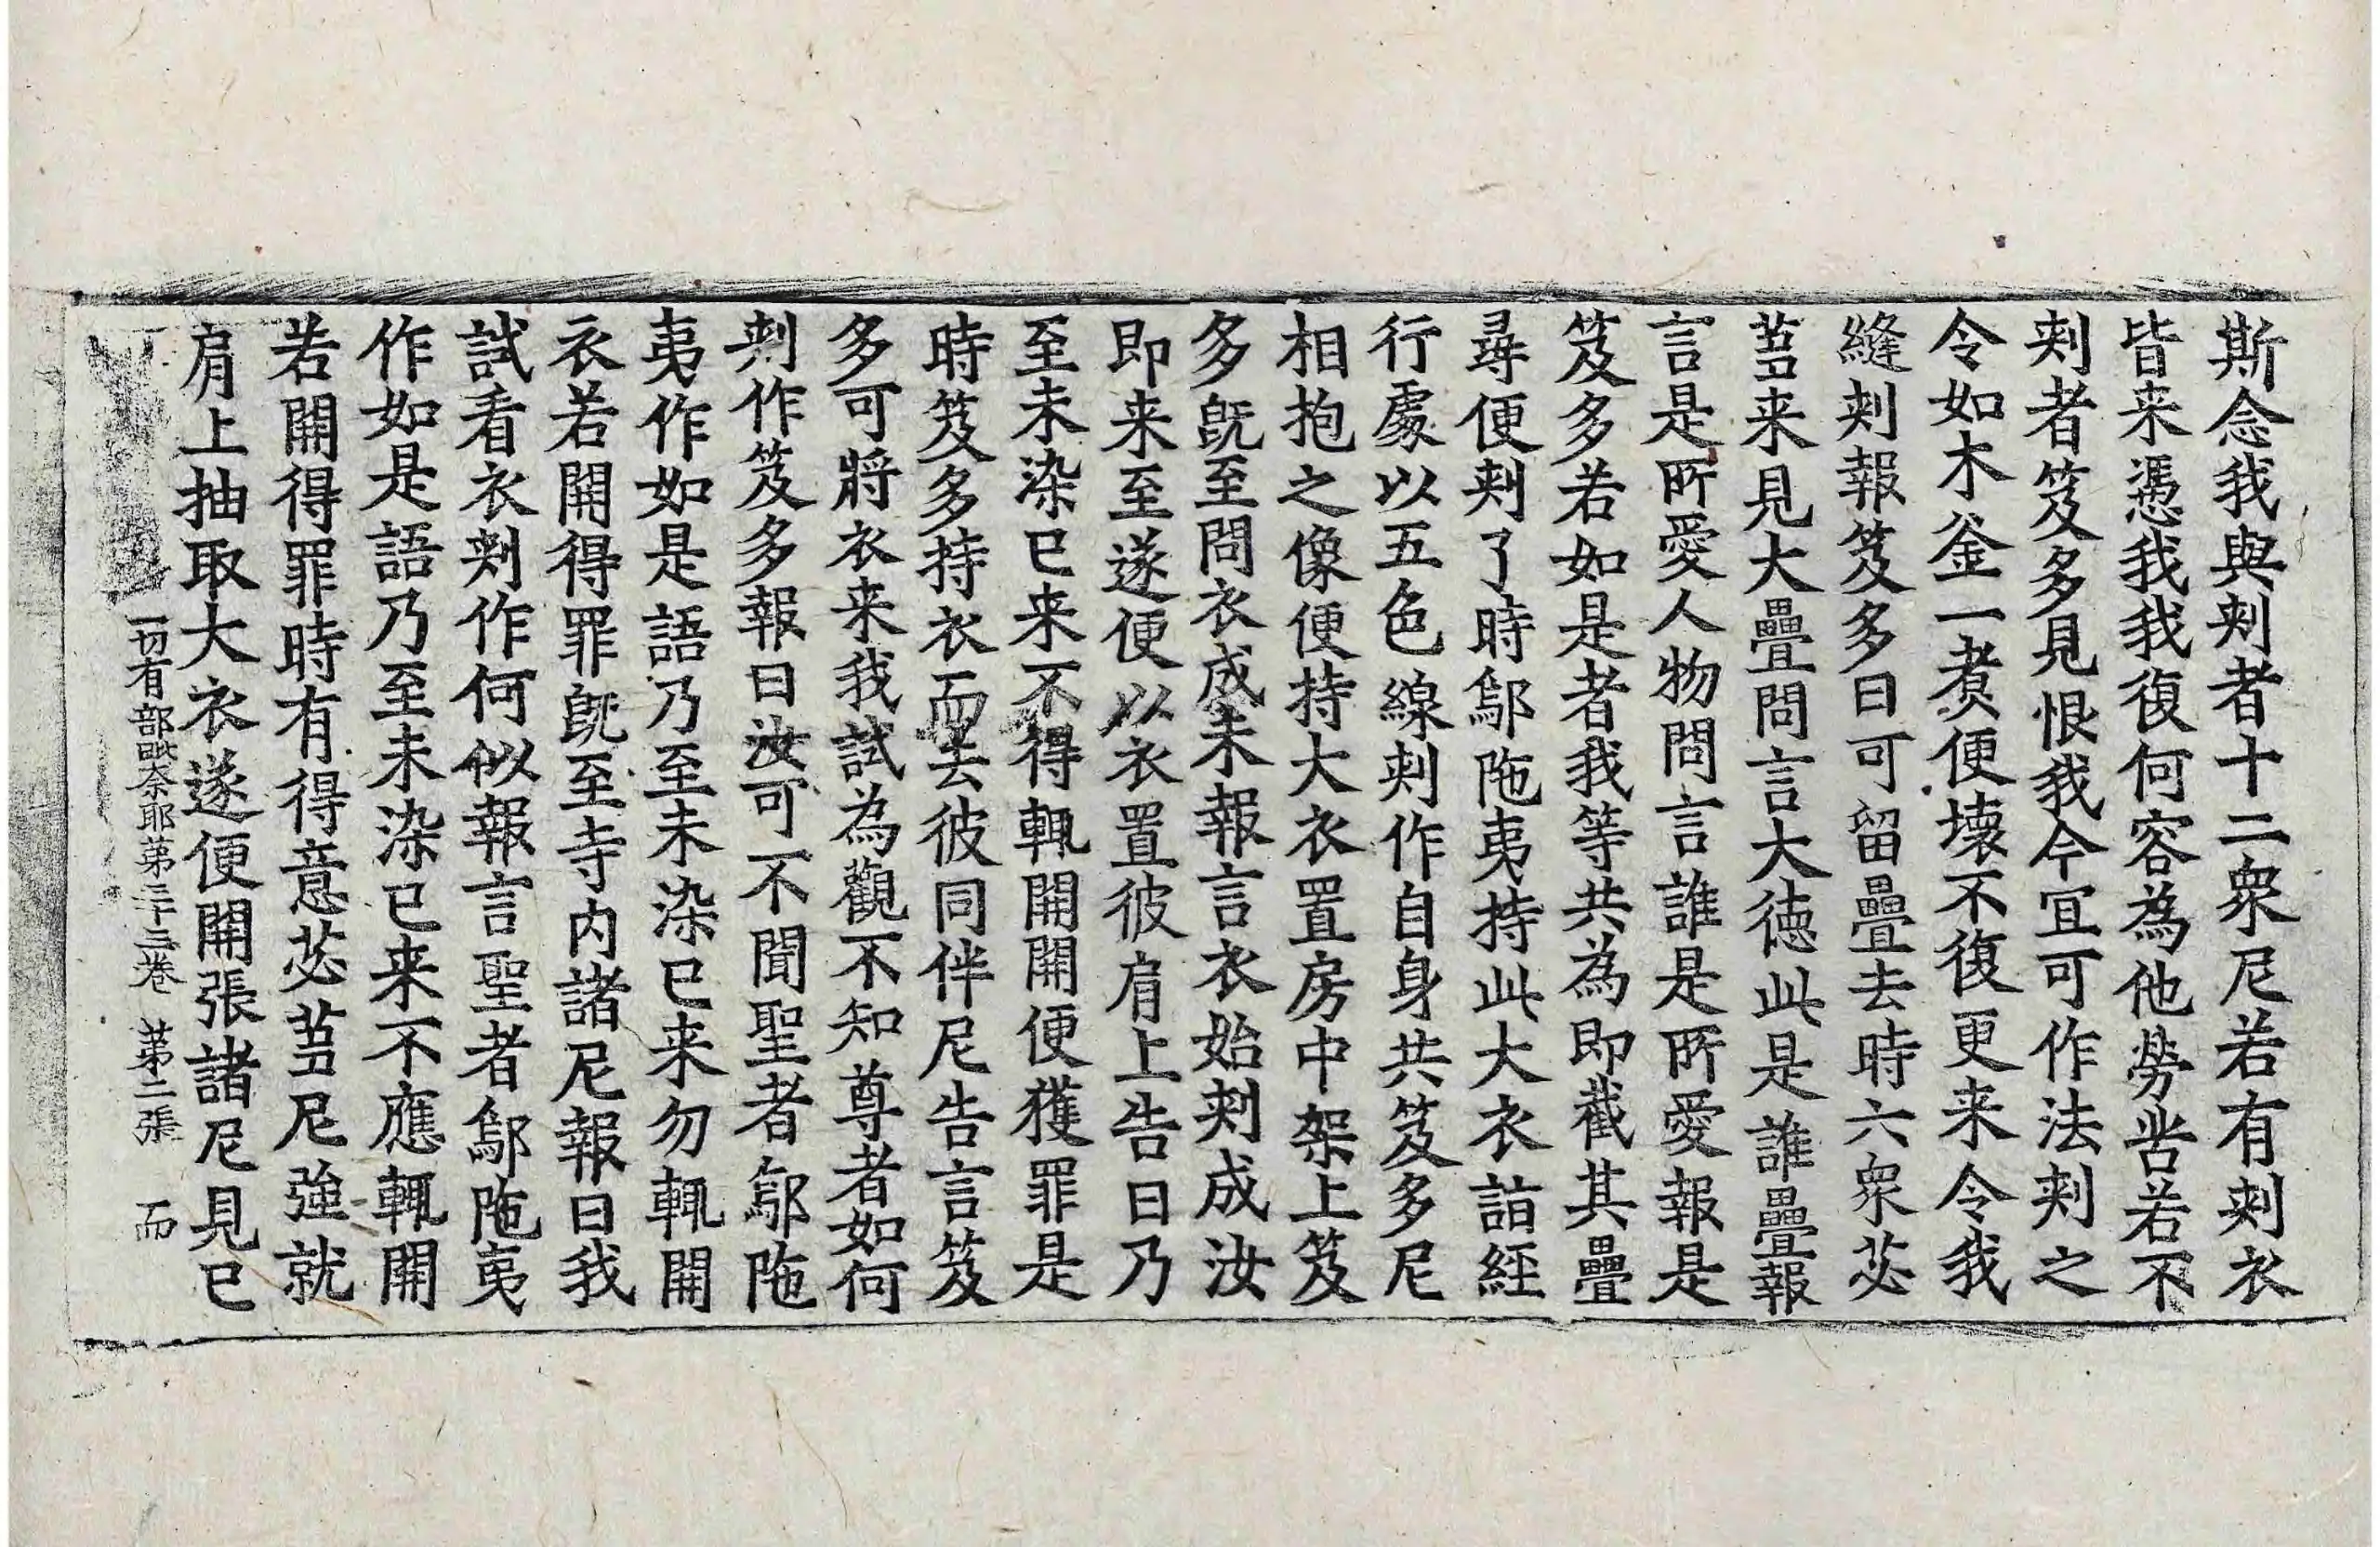 斯念我與刾者十二衆尼若有刾衣
皆来憑我我復何容為他勞苦若不
刾者笈多見恨我今冝可作法刾之
令如木釜一煑便壊不復更来令我
縫刾報笈多曰可留疊去時六衆苾
蒭来見大疊問言大徳此是誰疊報
言是所愛人物問言誰是所愛報是
笈多若如是者我等共為即截其疊
尋便刾了時鄔陁夷持此大衣詣經
行處以五色線刾作自身共笈多尼
相抱之像便持大衣置房中架上笈
多旣至問衣成未報言衣始刾成汝
即来至遂便以衣置彼肩上告曰乃
至未染已来不得輒開開便獲罪是
時笈多持衣而去彼同伴尼告言笈
多可將衣来我試為觀不知尊者如何
刾作笈多報曰汝可不聞聖者鄔陁
夷作如是語乃至未染已来勿輒開
衣若開得罪旣至寺内諸尼報曰我
試看衣刾作何似報言聖者鄔陁夷
作如是語乃至未染已来不應輒開
若開得罪時有得意苾蒭尼強就
肩上抽取大衣遂便開張諸尼見已
一切有部毗奈耶第三十三卷 第二張 而